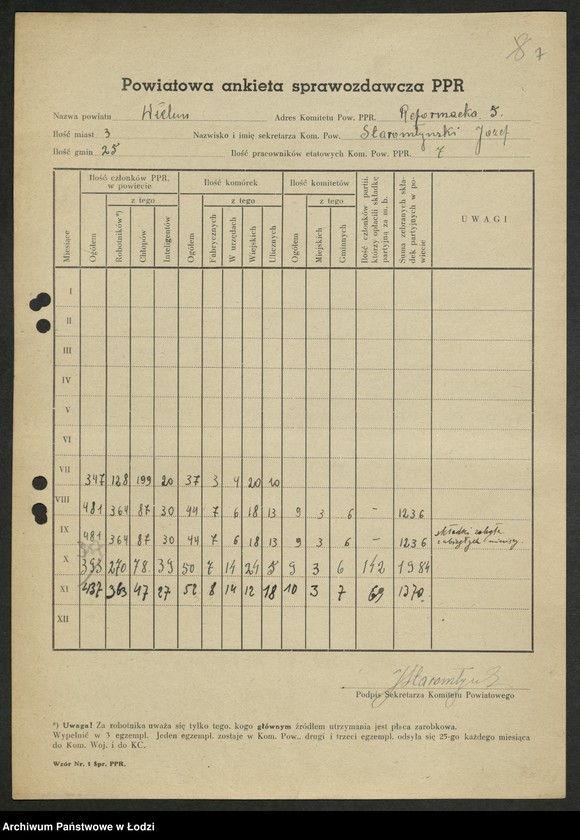 8 7
Powiatowa ankieta sprawozdawcza PPR
Nazwa powiatu Wieluń Adres Komitetu Pow. PPR. Reformacka 5.
Ilość miast 3 Nazwisko i imię sekretarza Kom. Pow. Staromłyński Józef
Ilość gmin 25 Ilość pracowników etatowych Kom. Pow. PPR. 7
Miesiące
Ilość członków PPR. w powiecie
z tego
Ogółem
Robotników*)
Chłopów
Inteligentów
Ilość komórek
z tego
Ogółem
Fabrycznych
W urzędach
Wiejskich
Ulicznych
Ilość komitetów
z tego
Ogółem
Miejskich
Gminnych
Ilość członków partii, którzy opłacili składkę partyjną za m. b.
Suma zebranych składek partyjnych w powiecie
UWAGI
I
II
III
IV
V
VI
VII 347 128 199 20 37 3 4 20 10
VIII 481 364 87 30 44 7 6 18 13 9 3 6 – 1236
IX 481 364 87 30 44 7 6 18 13 9 3 6 – 1236 składki
X 393 270 78 39 50 7 14 24 5 9 3 6 142 1984
XI 437 363 47 27 52 8 14 12 18 10 3 7 69 1370.
XII
Podpis Sekretarza Komitetu Powiatowego
*) Uwaga! Za robotnika uważa się tylko tego, kogo głównym źródłem utrzymania jest płaca zarobkowa.
Wypełnić w 3 egzempl. Jeden egzempl. zostaje w Kom. Pow., drugi i trzeci egzempl. odsyła się 25-go każdego miesiąca
do Kom. Woj. i do KC.
Wzór Nr. 1 Spr. PPR.
Archiwum Państwowe w Łodzi